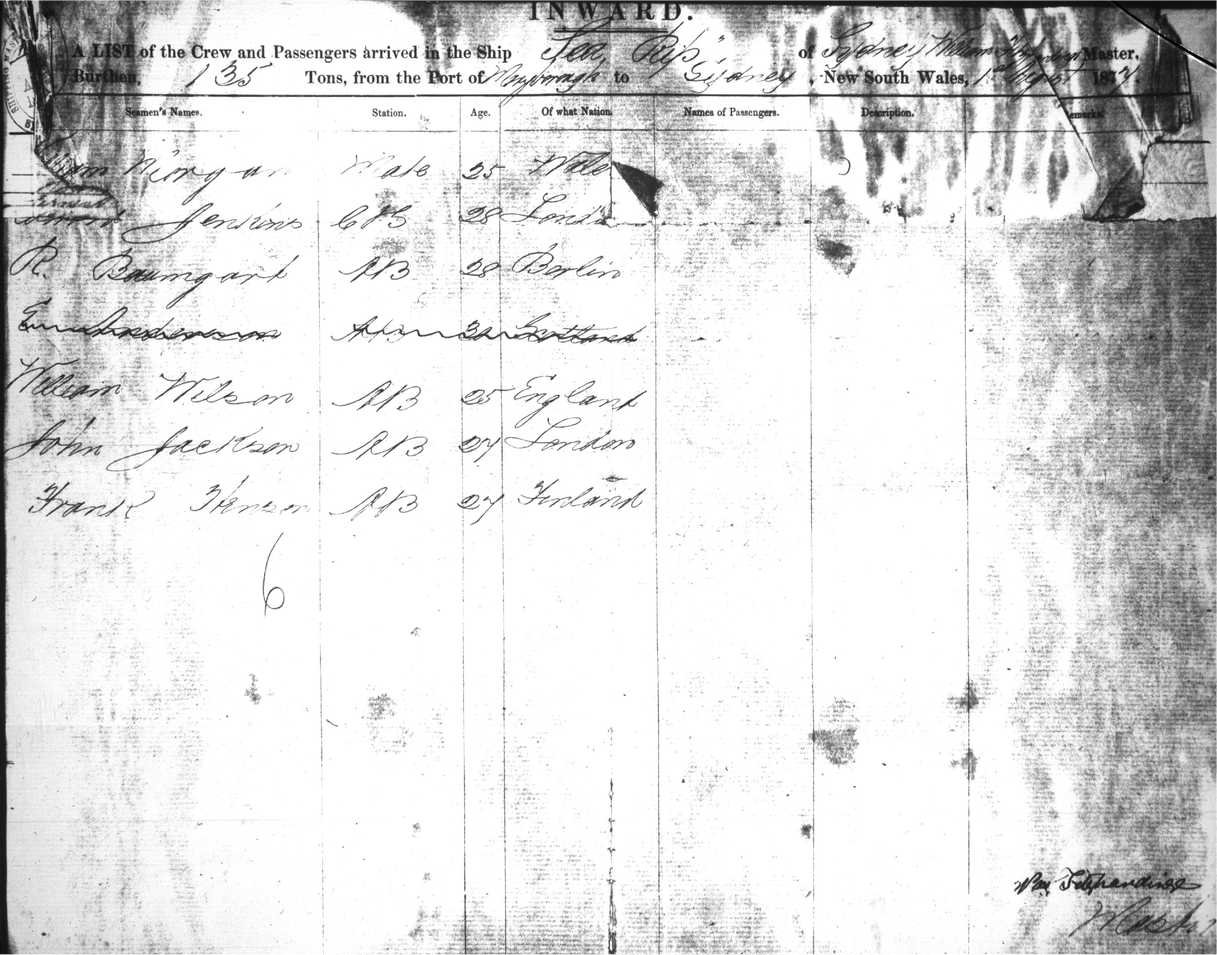 INWARD.
A LIST of the Crew and Passengers arrived in the Ship "Sea Rip" of Sydney William Master,
Burthen, 135 Tons, from the Port of Maryborough to Sydney, New South Wales, 1st August 187
Seamen's Names. Station. Age. Of what Nation. Names of Passengers. Description. emarks
Morgan Mate 25 Wale
Jenkins C&S 28 London
R. Baumgart AB 28 Berlin
Anderson 30 Scotland
William Wilson AB 25 England
John Jackson AB 27 London
Frank Henson AB 27 Finland
6
Wm
Master